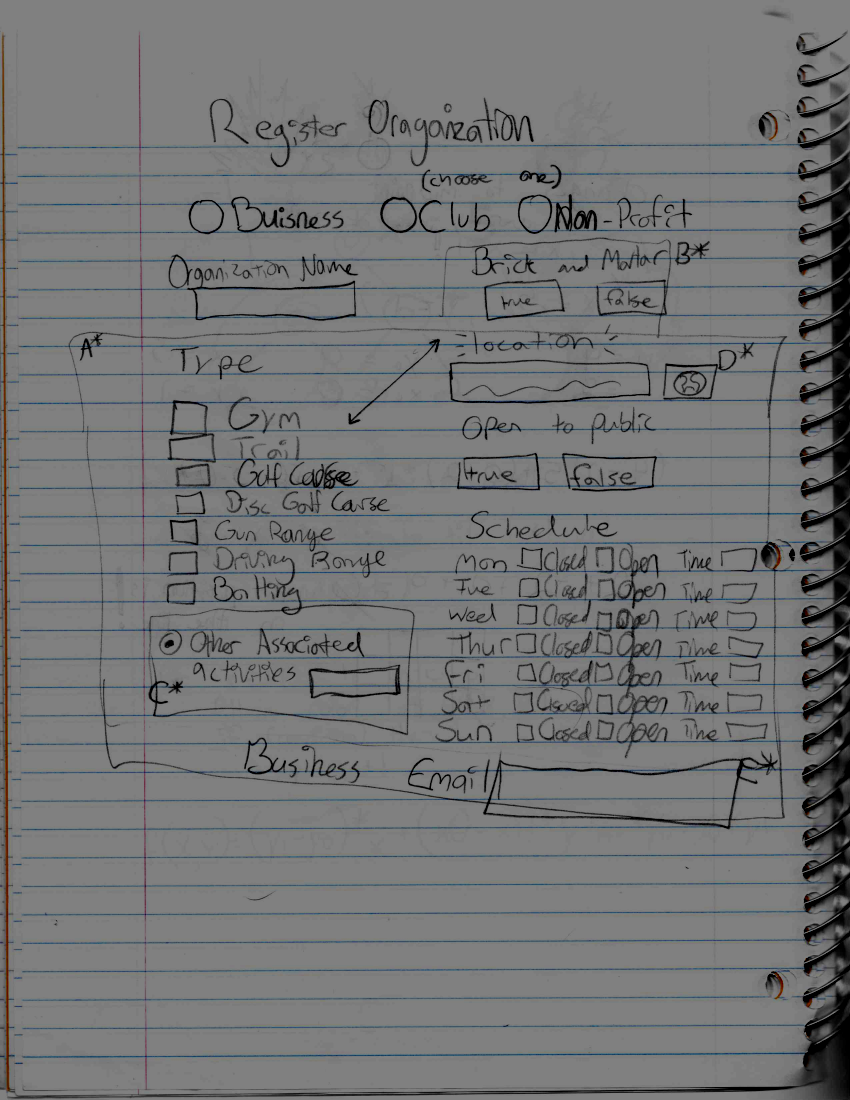 Register Oraganization
(choose one)
Buisness Club Non-Profit
Organization Name
Brick and Mortar B*
true false
A*
Type
location
D*
Gym
Trail
Golf Course
Disc Golf Carse
Gun Range
Driving Range
Batting
Other Associated
activities
C*
Open to public
true false
Schedule
Mon Closed Open Time
Tue Closed Open Time
Wed Closed Open Time
Thur Closed Open Time
Fri Closed Open Time
Sat Closed Open Time
Sun Closed Open Time
Business Email E*